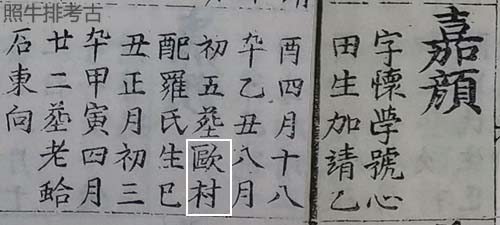 照牛排考古
嘉顔
字懷学號心
田生加請乙
酉四月十八
卒乙丑八月
初五塟歐村
配羅氏生巳
丑正月初三
卒甲寅四月
廿二塟老蛤
石東向